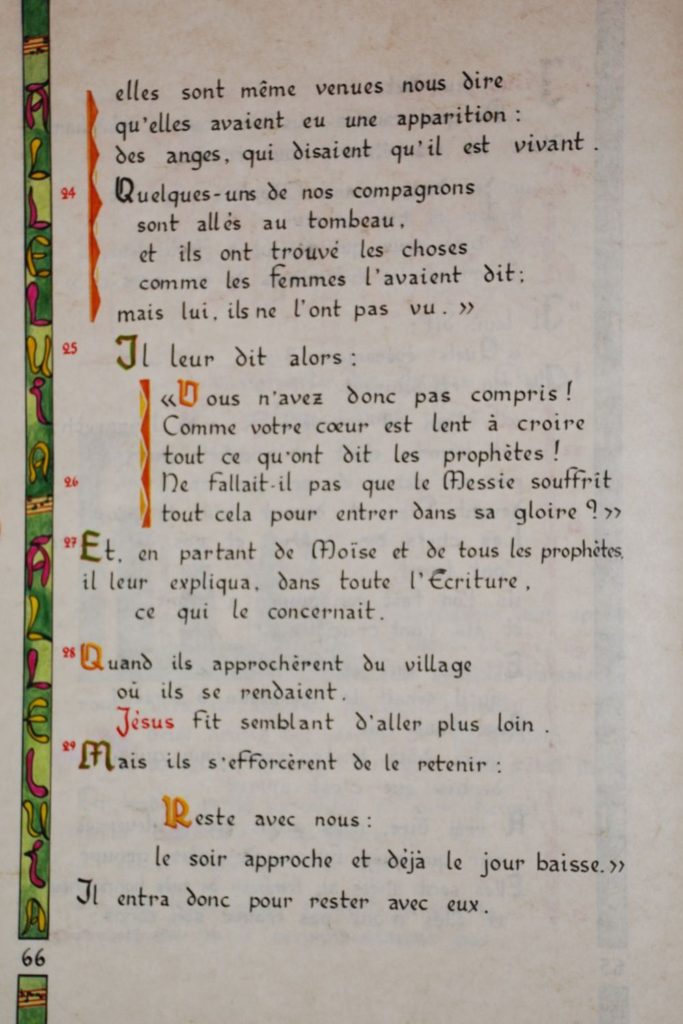 elles sont même venues nous dire
qu'elles avaient eu une apparition :
des anges, qui disaient qu'il est vivant .
24 Quelques-uns de nos compagnons
sont allés au tombeau,
et ils ont trouvé les choses
comme les femmes l'avaient dit;
mais lui, ils ne l'ont pas vu . »
25 Il leur dit alors :
«Vous n'avez donc pas compris !
Comme votre cœur est lent à croire
tout ce qu'ont dit les prophètes !
26 Ne fallait-il pas que le Messie souffrît
tout cela pour entrer dans sa gloire ? »
27 Et, en partant de Moïse et de tous les prophètes,
il leur expliqua, dans toute l'Ecriture,
ce qui le concernait .
28 Quand ils approchèrent du village
où ils se rendaient .
Jésus fit semblant d'aller plus loin .
29 Mais ils s'efforcèrent de le retenir :
Reste avec nous :
le soir approche et déjà le jour baisse. »
Il entra donc pour rester avec eux .
66
ALLELUIA ALLELUIA